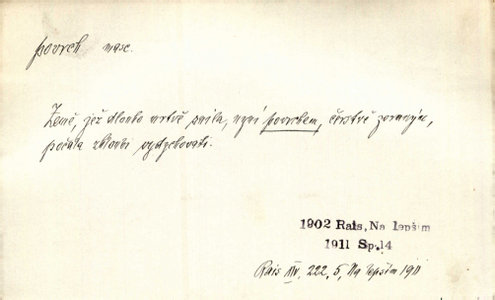 povrch masc.
Země, jež dlouho mrtvě spila, nyní povrchem, čerstvě zoraným,
počala zhluboka vydychovati.
1902 Rais, Na lepším
1911 Sp.14
Rais XIV. 222, 5, Na lepším 1911